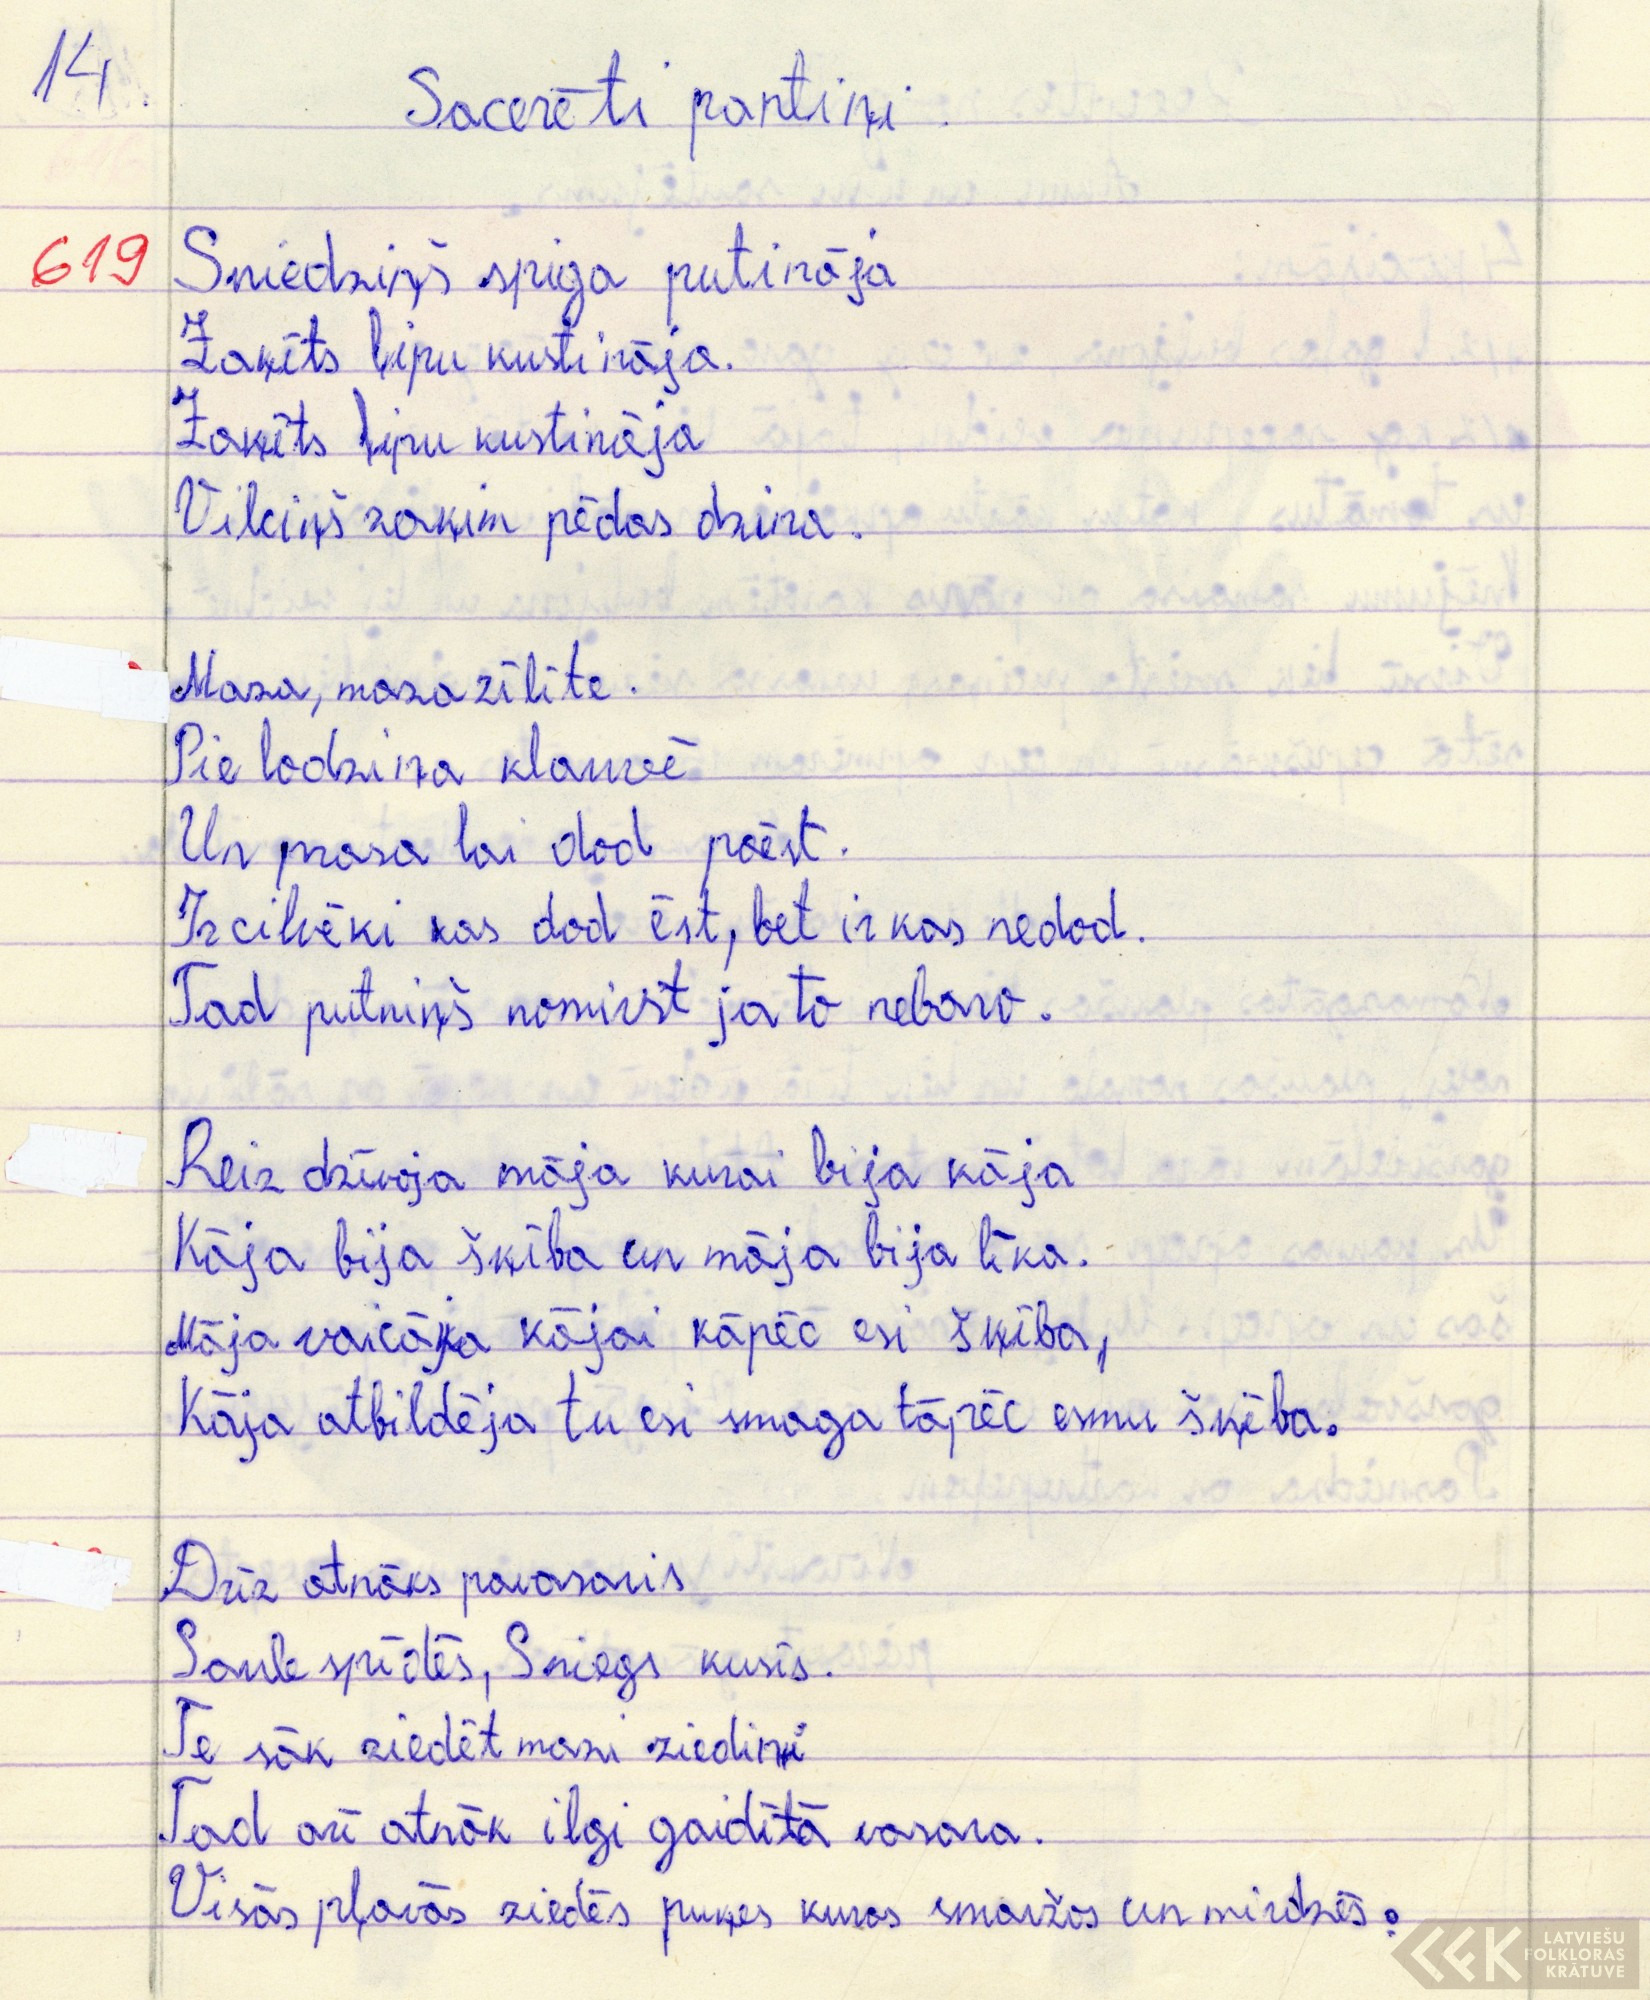 14.
Sacerēti pantiņi.
619 Sniedziņš spiga putināja
Zaķīts ļipu kustināja.
Zaķīts ļipu kustināja
Vilciņš zaķim pēdas dzina.
Maza, maza zīlīte.
Pie lodziņa klauvē
Un prasa lai dod paēst.
Ir cilvēki kas dod ēst, bet ir kas nedod.
Tad putniņš nomirst ja to nebaro.
Reiz dzīvoja māja kurai bija kāja
Kāja bija šķība un māja bija līka.
Māja vaicāja kājai kāpēc esi šķība,
Kāja atbildēja tu esi smaga tāpēc esmu šķība.
Drīz atnāks pavasaris
Saule spīdēs, Sniegs kusīs.
Te sāk ziedēt mazi ziediņi
Tad arī atnāk ilgi gaidītā vasara.
Visās pļavās ziedēs puķes kuras smaržos un mirdzēs.
LATVIEŠU
FOLKLORAS
KRĀTUVE